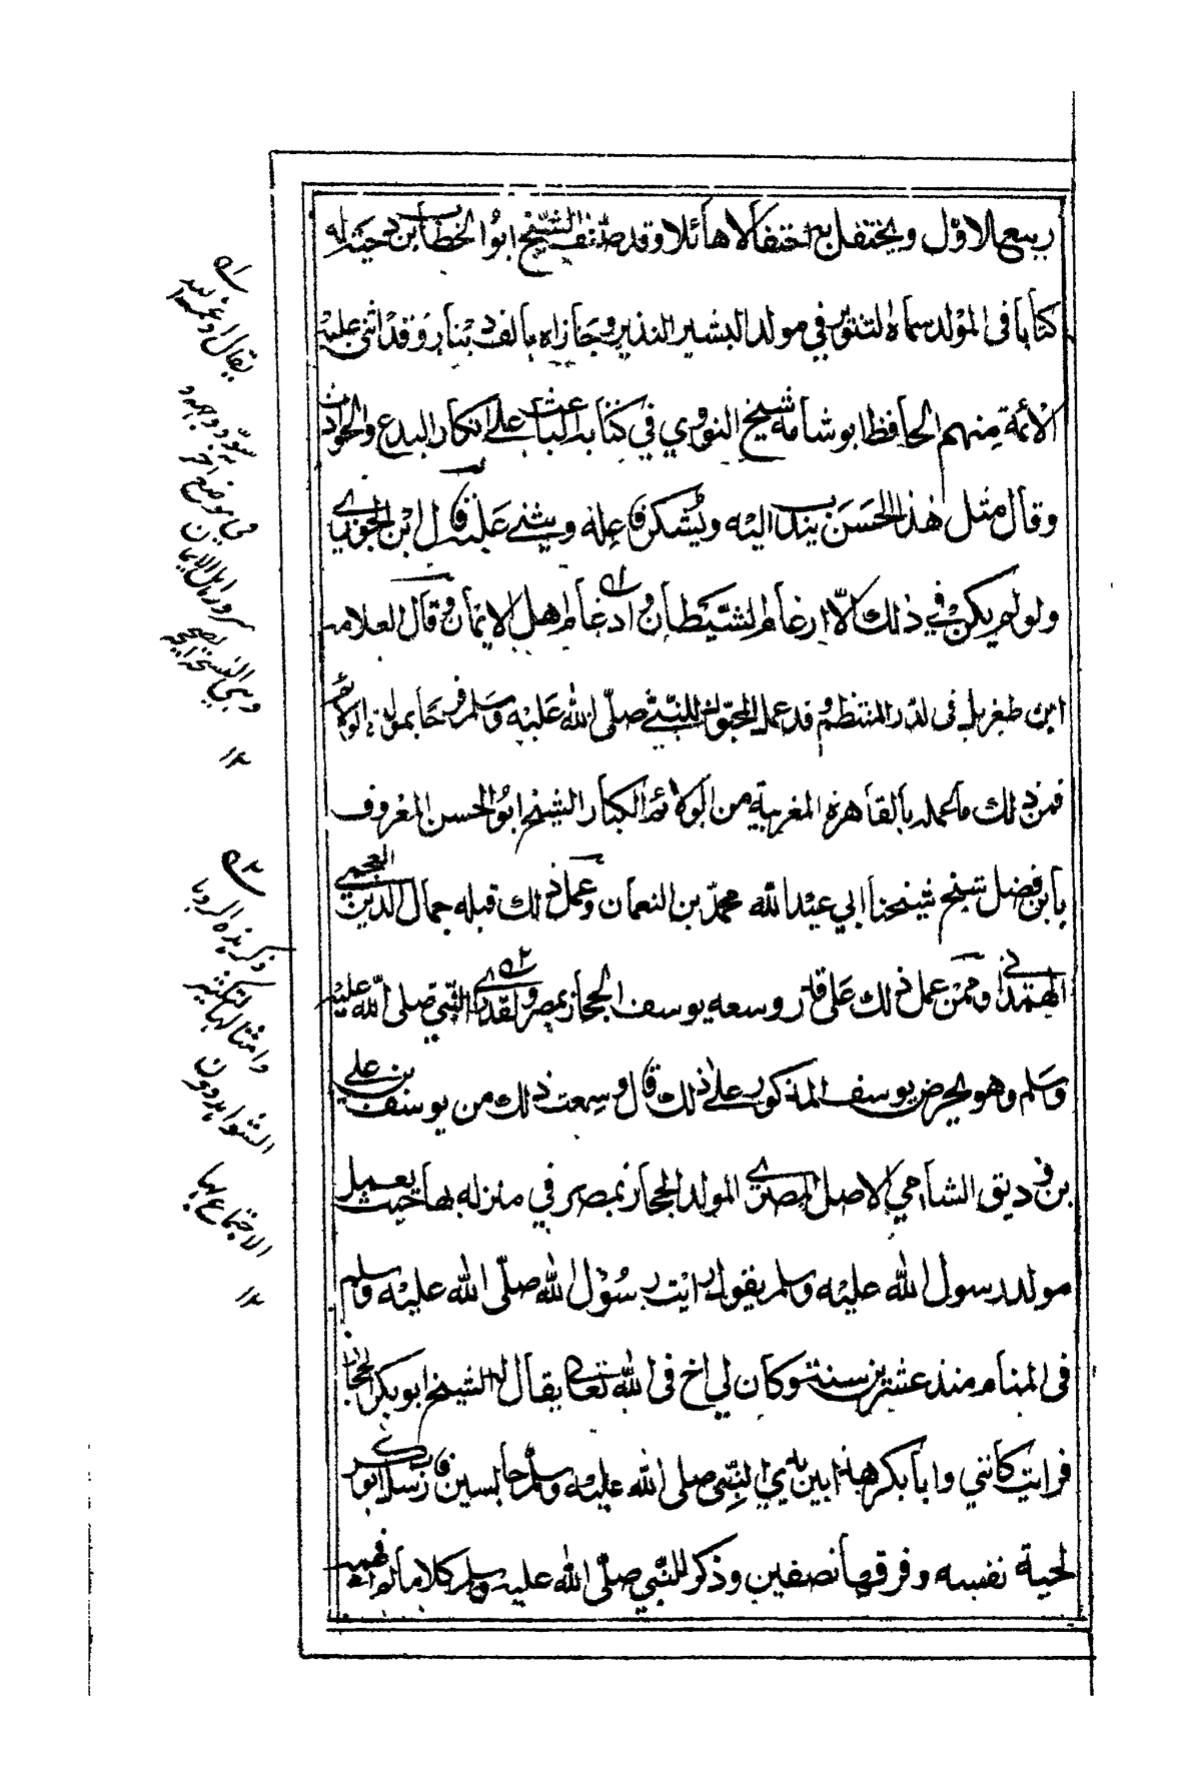 ربيع الاوّل ويحتفل به احتفالا هائلا وقد صنّف الشّيخ ابوُ الخطاب بن دحية له
كتابا فى الموْلد سماه التنوير في مولد البشير النذير وجازاه بالف دينار وَقدْ اثنى عليْه
الأئمّة مِنهم الحافظ ابو شامة شيخ النووي في كتابه الباعث على انكار البدع والحوادث
وقال مثل هٰذا الحَسَن يندب اليْه ويُشكر فاعِله ويثنى عَليْه قال ابْن الجوزي
ولو لم يكنْ في ذلك الّا ارغام الشّيْطان وادغام اهل الايمان وقال العلامة
ابن طغربل فى الدّر المنتظم وقد عمل المحبّون للنبّي صلّى الله عَليْه وَسَلم فرحا بمولده الولائم
فمن ذلك ما عمله بالقاهرة المغربية من الولائم الكبار الشيخ ابوُ الحسن المعْروف
بابن فضل شيخ شيخنا ابي عبْد الله محمدّ بن النعمان وعمل ذلك قبله جمال الدين العجمي
الهمْدانى وممّن عمل ذلك عَلى قدر وسعه يوسف الحجار بمصر ولقد راى النّبي صلى الله عليْه
وَسَلم وهو يحرض يوسف المذكور على ذلك قال وسمعت ذلك من يوسف بن علي
بن زريق الشامي الاصل المصرى المولد الحجار بمصر في منزله بها حيث يعمل
مولد رسول الله عليْه وسلم يقول رايْت رسُوْل الله صلّى الله عليْه وسلم
فى المنام منذ عشرين سنة وكان لي اخ فى الله تعالى يقال له الشيخ ابو بكر الحجار
فرايت كانني وابا بكر هذا بين يدي النبّي صلى الله عليْه وسلم جالسين فامسك ابو بكر
لحية نفسه وفرقها نصفين وذكر للنّبي صلّى الله عليه وسلم كلاما لم افهمه
يقال ادغمه الله
سوّد وجهه و
فى موضع اخر
سرور اهل الايمان
وهي النسخة الصحيحة
١٢
ذكر هذه الرويا
وامثالها لتكثير
الشواهد دون
الاحتجاج بها
١٢